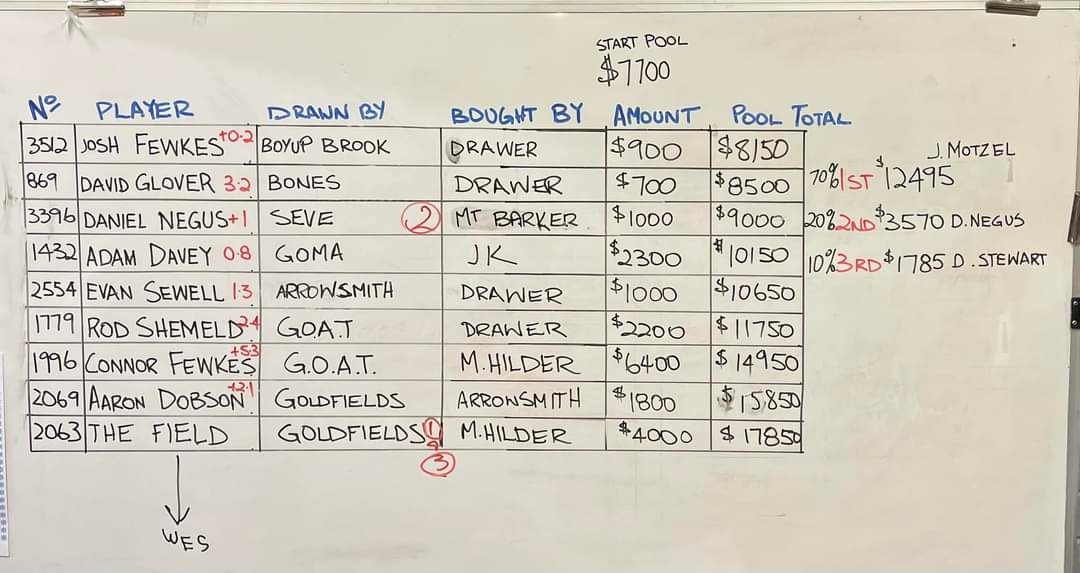 START POOL
$7700
Nº PLAYER DRAWN BY BOUGHT BY AMOUNT POOL TOTAL
3512 JOSH FEWKES +0.2 BOYUP BROOK DRAWER $900 $8150
J. MOTZEL
869 DAVID GLOVER 3.2 BONES DRAWER $700 $8500 70% 1ST $12495
3396 DANIEL NEGUS +1 SEVE 2 MT BARKER $1000 $9000 20% 2ND $3570 D. NEGUS
1432 ADAM DAVEY 0.8 GOMA JK $2300 $10150 10% 3RD $1785 D. STEWART
2554 EVAN SEWELL 1.3 ARROWSMITH DRAWER $1000 $10650
1779 ROD SHEMELD 2.4 G.O.A.T DRAWER $2200 $11750
1996 CONNOR FEWKES +5.3 G.O.A.T. M. HILDER $6400 $14950
2069 AARON DOBSON +2.1 GOLDFIELDS ARROWSMITH $1800 $15850
2063 THE FIELD GOLDFIELDS 1 & M. HILDER $4000 $17850
3
WES